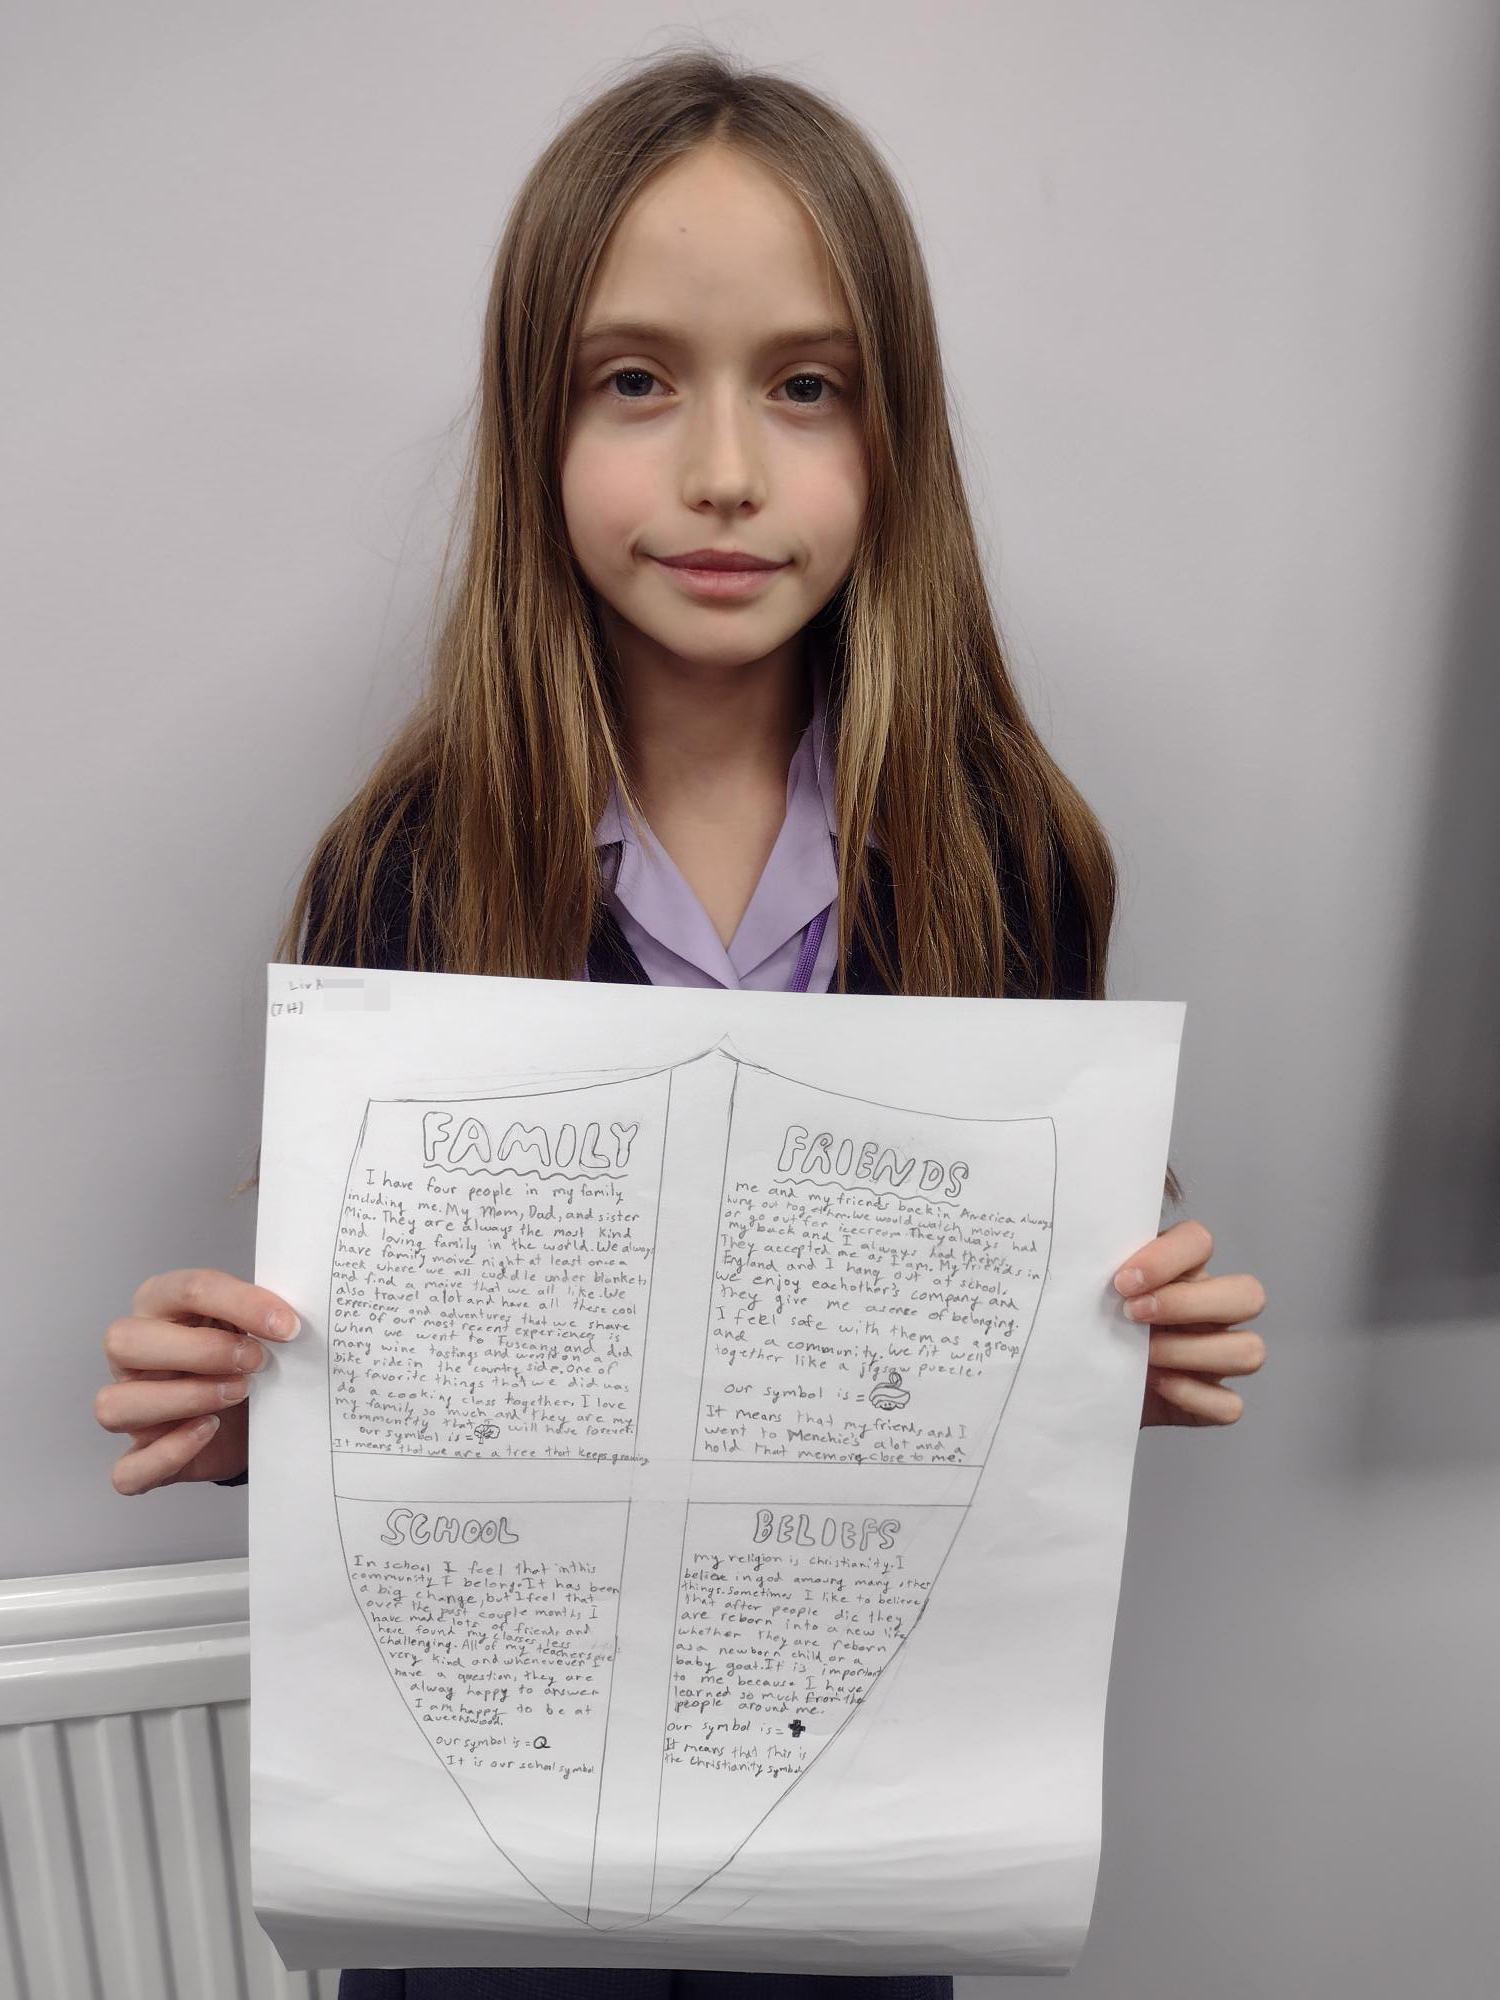 Liv R
(7H)
FAMILY
I have four people in my family
including me. My Mom, Dad, and sister
Mia. They are always the most kind
and loving family in the world. We always
have family moive night at least once a
week where we all cuddle under blankets
and find a moive that we all like. We
also travel alot and have all these cool
experiences and adventures that we share
one of our most recent experiences is
when we went to Tuscany and did
many wine tastings and went on a
bike ride in the country side. One of
my favorite things that we did was
do a cooking class together. I love
my family so much and they are my
community that I will have forever.
our symbol is =
It means that we are a tree that keeps growing
FRIENDS
me and my friends back in America always
hung out together. We would watch moives
or go out for icecream. They always had
my back and I always had theirs.
They accepted me as I am. My friends in
England and I hang out at school.
we enjoy eachother's company and
they give me a sense of belonging.
I feel safe with them as a group
and a community. We fit well
together like a jigsaw puzzle.
our symbol is =
It means that my friends and I
went to Menchie's alot and a
hold that memory close to me.
SCHOOL
In school I feel that in this
community I belong. It has been
a big change, but I feel that
over the past couple months I
have made lots of friends and
have found my classes less
challenging. All of my teachers are
very kind and whenevever I
have a question, they are
alway happy to answer
I am happy to be at
Queenswood.
our symbol is = Q
It is our school symbol
BELIEFS
my religion is christianity. I
believe in god amoung many other
things. Sometimes I like to believe
that after people die they
are reborn into a new life
whether they are reborn
as a newborn child or a
baby goat. It is important
to me because I have
learned so much from the
people around me.
our symbol is =
It means that this is
the christianity symbol